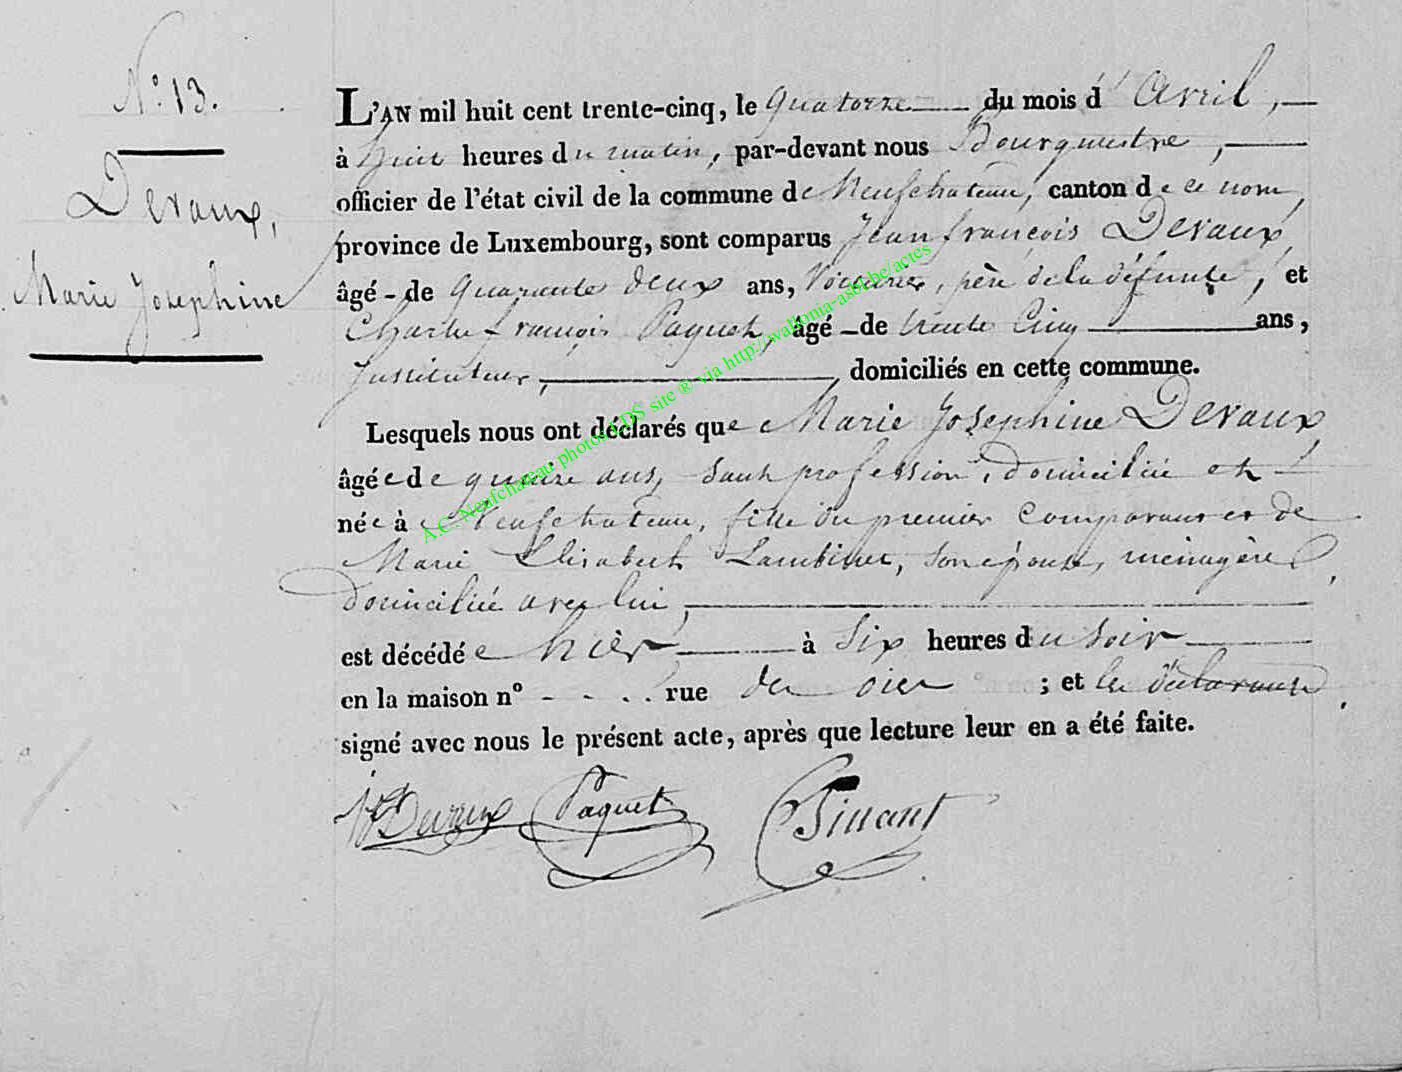 N.° 13.
Devaux,
Marie Josephine
L'AN mil huit cent trente-cinq, le quatorze du mois d'Avril,
à huit heures du matin, par-devant nous Bourgmestre,
officier de l'état civil de la commune de Neufchateau, canton de ce nom,
province de Luxembourg, sont comparus Jean françois Devaux,
âgé - de quarante deux ans, Voiturier, père de la défunte, et
Charles françois Paquet, âgé - de trente Cinq ans,
Instituteur, domiciliés en cette commune.
Lesquels nous ont déclarés que Marie Josephine Devaux,
âgée de quinze ans, sans profession, domiciliée et
née à Neufchateau, fille du premier Comparant et de
Marie Elisabeth Lambinet, son épouse, ménagère,
domiciliée avec lui,
est décédée hier à six heures du soir
en la maison n° - - . . rue ; et les déclarants
signé avec nous le présent acte, après que lecture leur en a été faite.
Devaux Paquet Sinant
A.C. Neufchateau photos LDS site ® via http://wallonia-asbl.be/actes